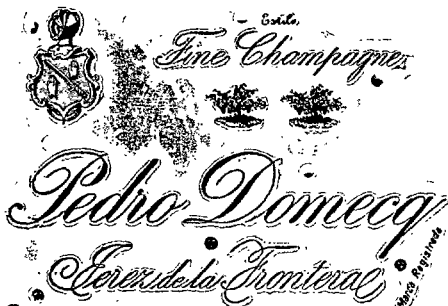 Estilo,
Fine Champagne
Pedro Domecq
Jerez de la Frontera
Marca Registrada